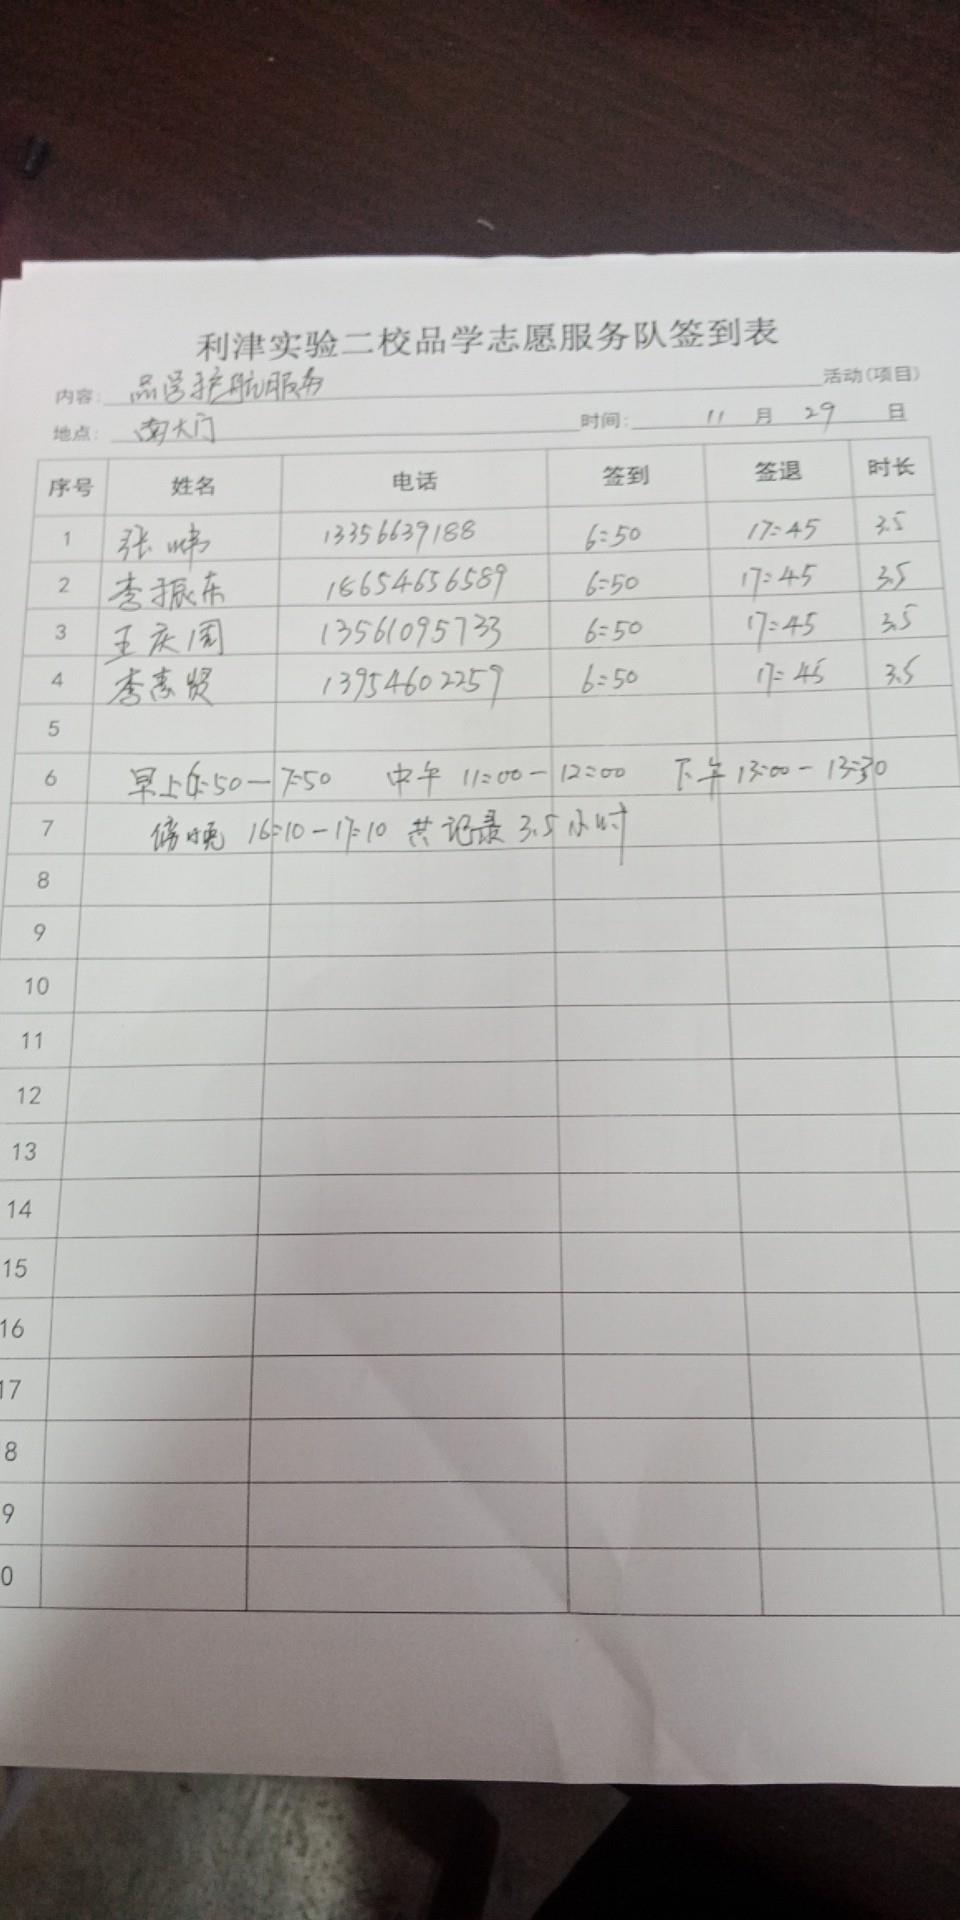 利津实验二校品学志愿服务队签到表
内容: 品学护航服务 活动(项目)
地点: 南大门 时间: 11 月 29 日
序号 姓名 电话 签到 签退 时长
1 张 13356639188 6:50 17:45 3.5
2 李振东 18654656589 6:50 17:45 3.5
3 王庆周 13561095733 6:50 17:45 3.5
4 李志贤 13954602259 6:50 17:45 3.5
5
6 早上6:50-7:50 中午 11:00-12:00 下午 13:00-13:30
7 傍晚 16:10-17:10 共记录 3.5小时
8
9
10
11
12
13
14
15
16
17
8
9
0